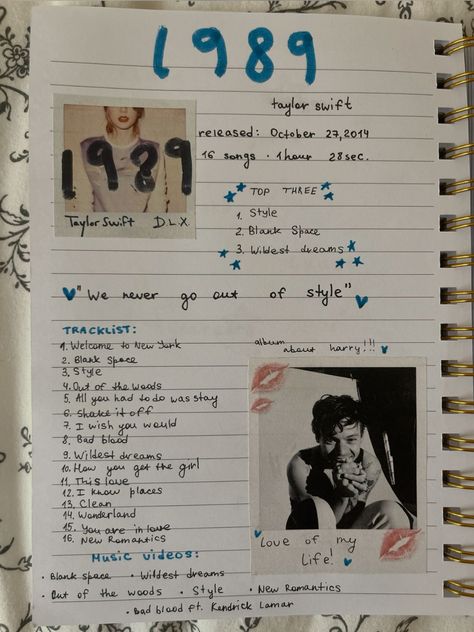 1989
taylor swift
1989
Taylor Swift D.L.X.
released: October 27, 2014
16 songs · 1 hour 28 sec.
TOP THREE
1. Style
2. Blank Space
3. Wildest dreams
"We never go out of style"
TRACKLIST:
1. Welcome to New York
2. Blank Space
3. Style
4. Out of the woods
5. All you had to do was stay
6. Shake it off
7. I wish you would
8. Bad blood
9. Wildest dreams
10. How you get the girl
11. This love
12. I know places
13. Clean
14. Wonderland
15. You are in love
16. New Romantics
album
about harry!!!
Love of my
Life!
Music videos:
· Blank space · Wildest dreams
· Out of the woods · Style · New Romantics
· Bad blood ft. Kendrick Lamar